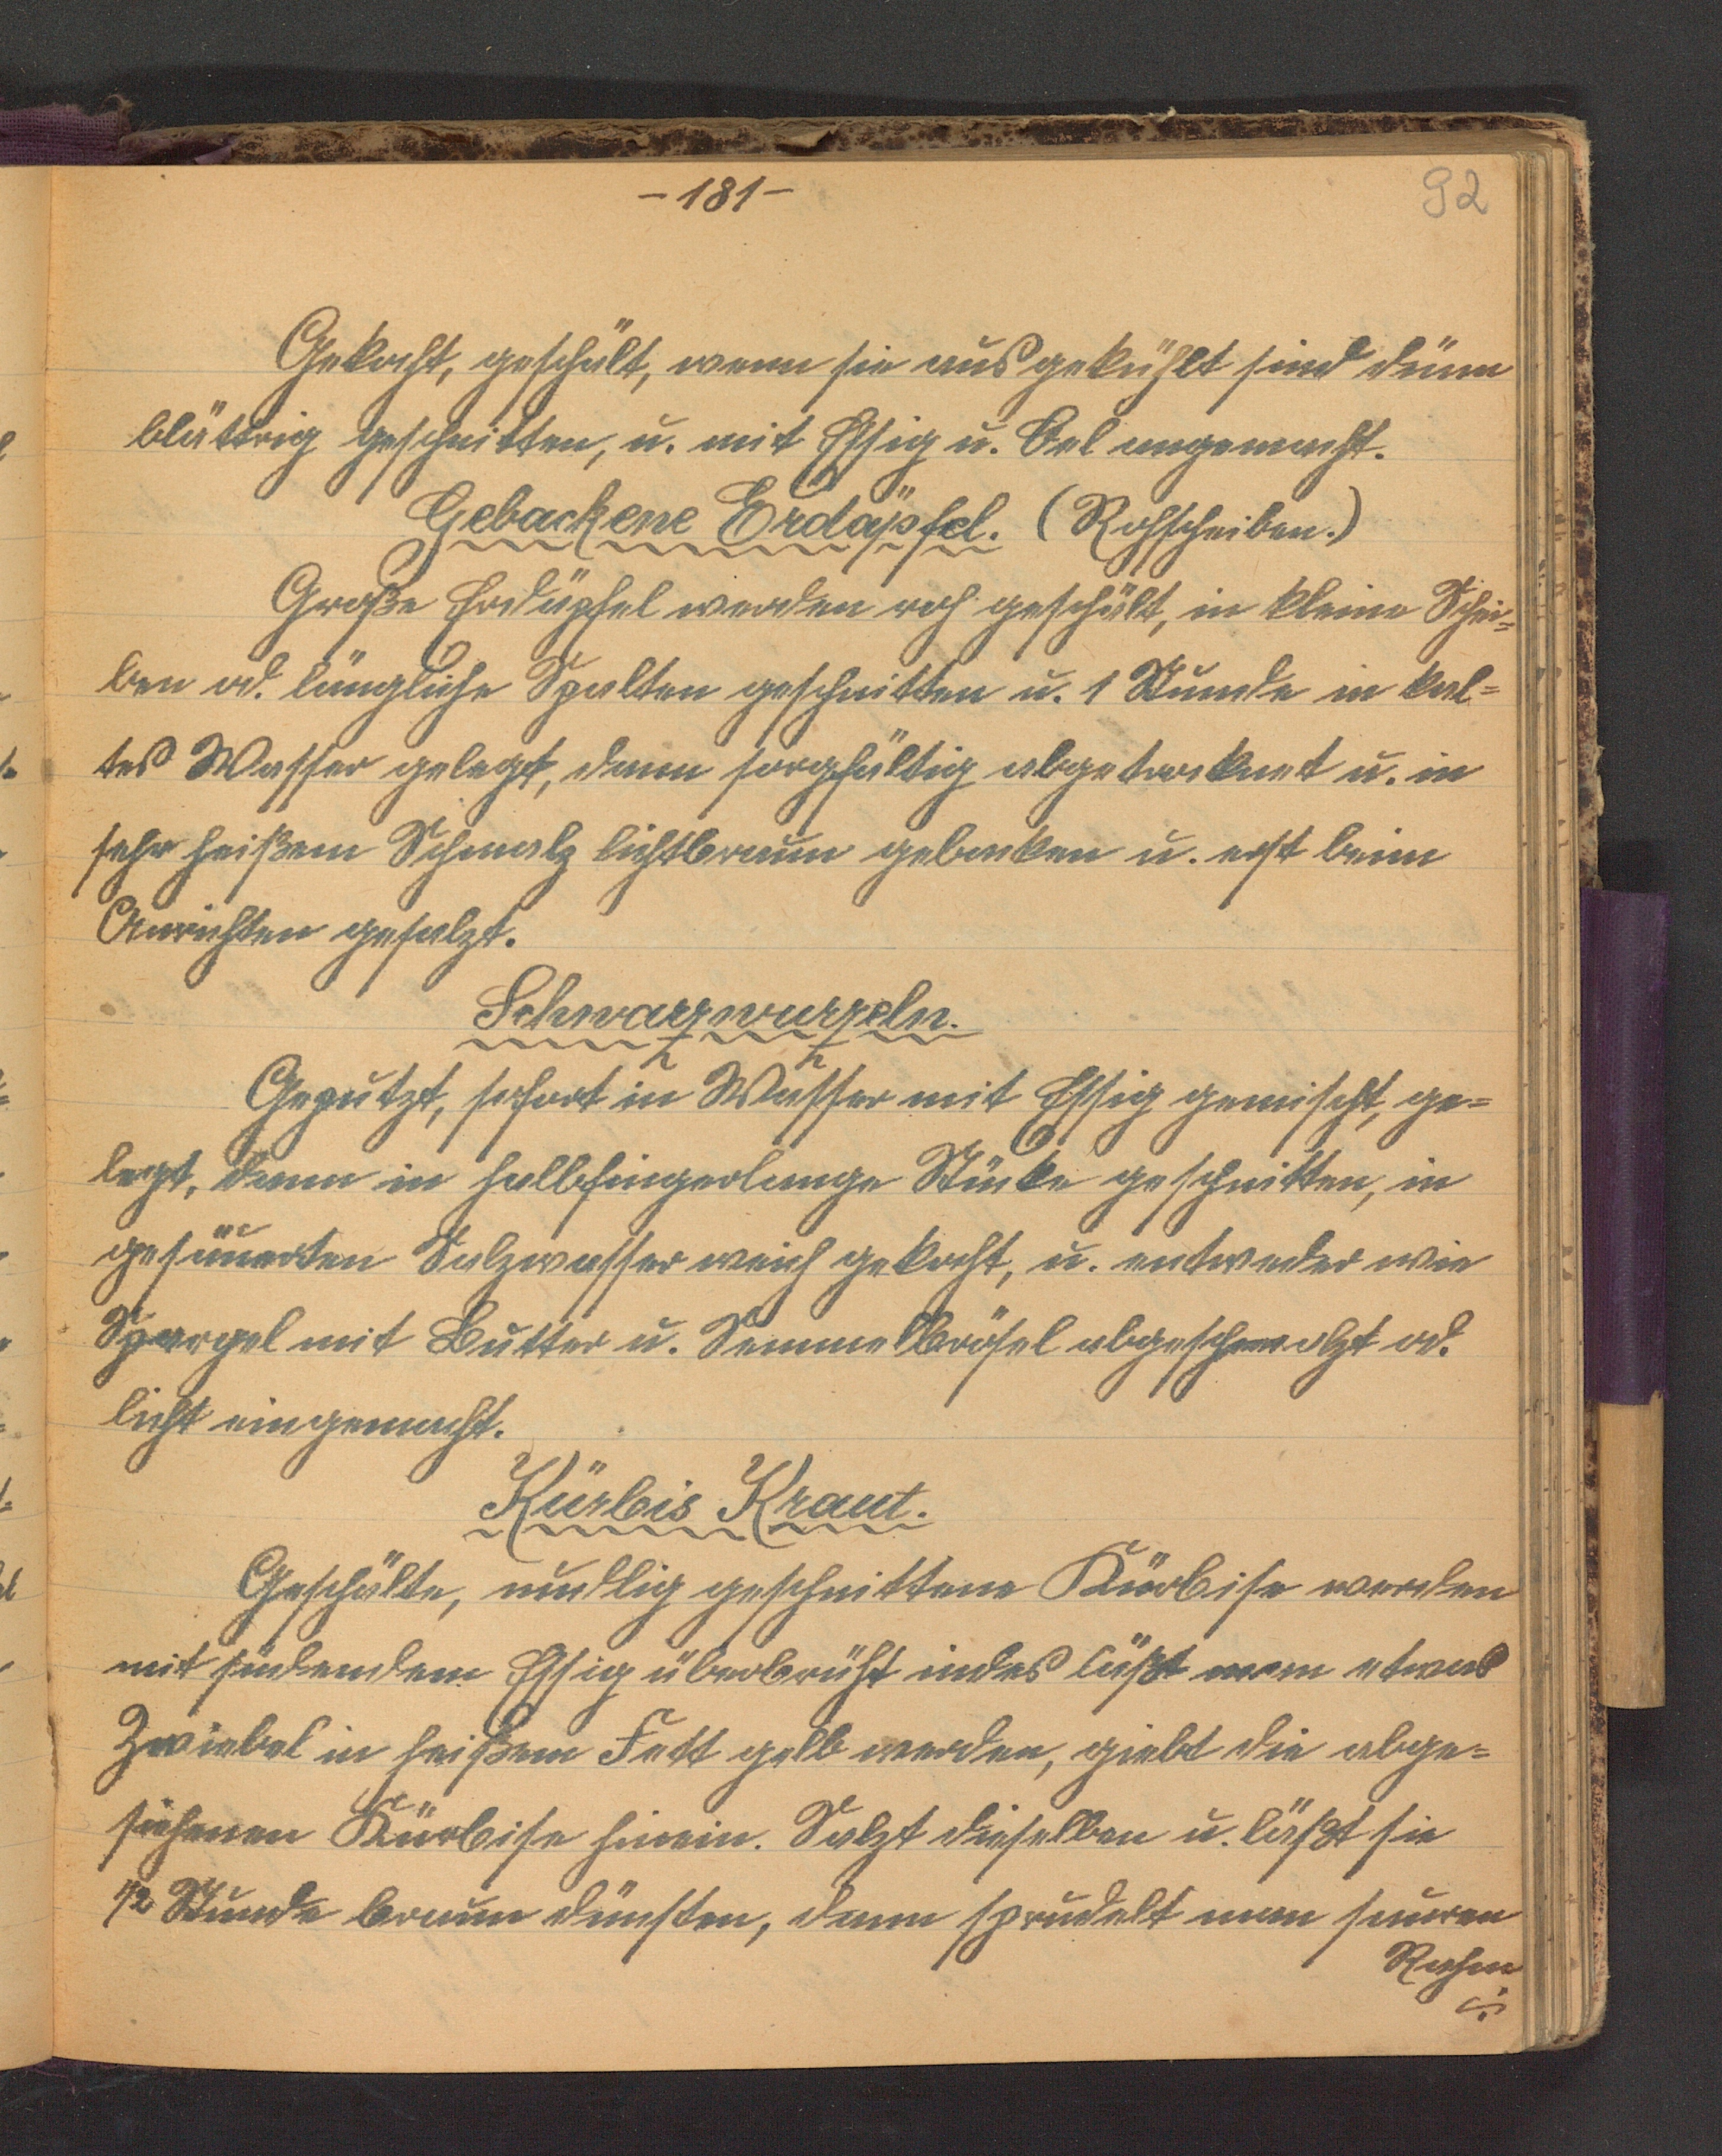 -181-
92
Gekocht, geschält, wenn sie ausgekühlt sind dünn
blättrig geschnitten, u. mit Essig u. Oel angemacht.
Gebackene Erdäpfel. (Rohscheiben.)
Große Erdäpfel werden roh geschält, in kleine Schei=
ben od. längliche Spalten geschnitten u. 1 Stunde in kal=
tes Wasser gelegt, dann sorgfältig abgetrocknet u. in
sehr heißem Schmalz lichtbraun gebacken u. erst beim
Anrichten gesalzt.
Schwarzwurzeln.
Geputzt, sofort in Wasser mit Essig gemischt, ge=
legt, dann in halbfingerlange Stücke geschnitten, in
gesäuerten Salzwasser weich gekocht, u. entweder wie
Spargel mit Butter u. Semmelbrösel abgeschmalzt od.
licht eingemacht.
Kürbis Kraut.
Geschälte, nudlig geschnittene Kürbise werden
mit siedendem Essig überbrüht indes läßt man etwas
Zwiebel in heißem Fett gelb werden, giebt die abge=
siehenen Kürbise hinein. Salzt dieselben u. läßt sie
1/2 Stunde braun dünsten, dann sprudelt man sauren
Rahm